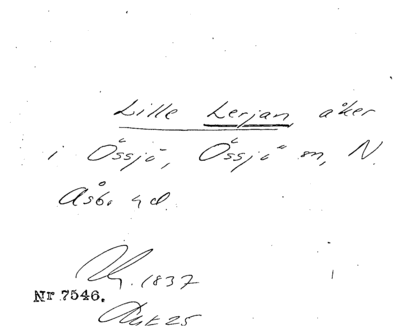 Lille Lerjan, åker
i Össjö, Össjö sn, N.
Åsbo hd.
1837
Nr 7546.
Akt 25